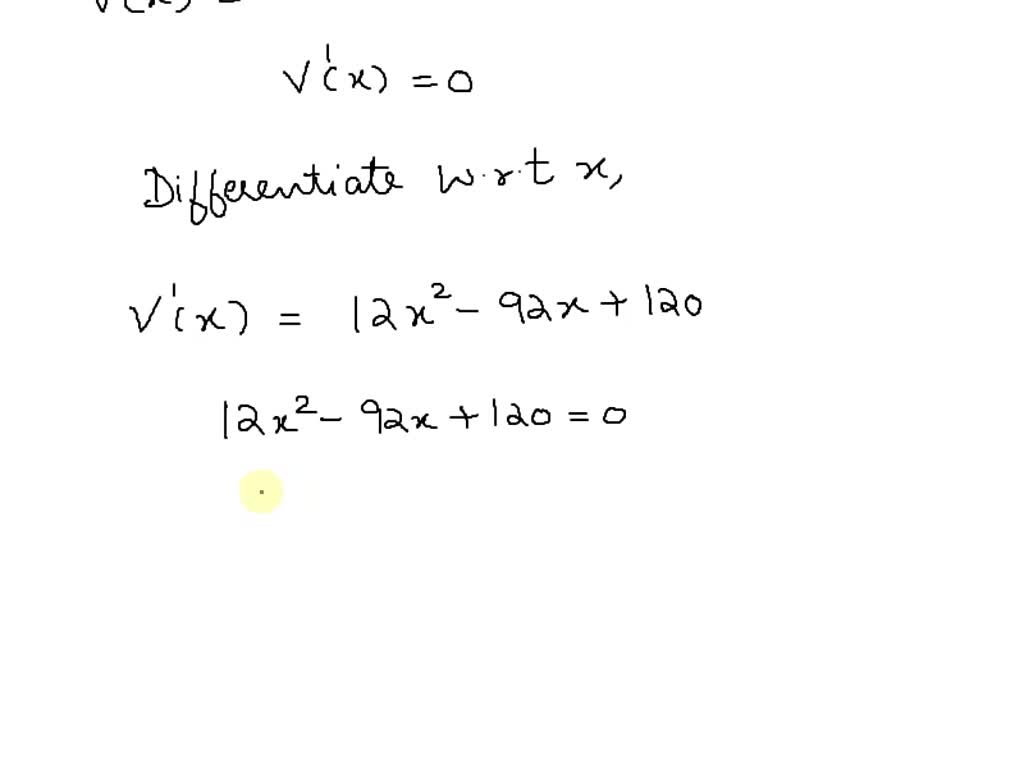 V(x) =
V'(x) = 0
Differentiate w.r.t x,
V'(x) = 12x² - 92x + 120
12x² - 92x + 120 = 0